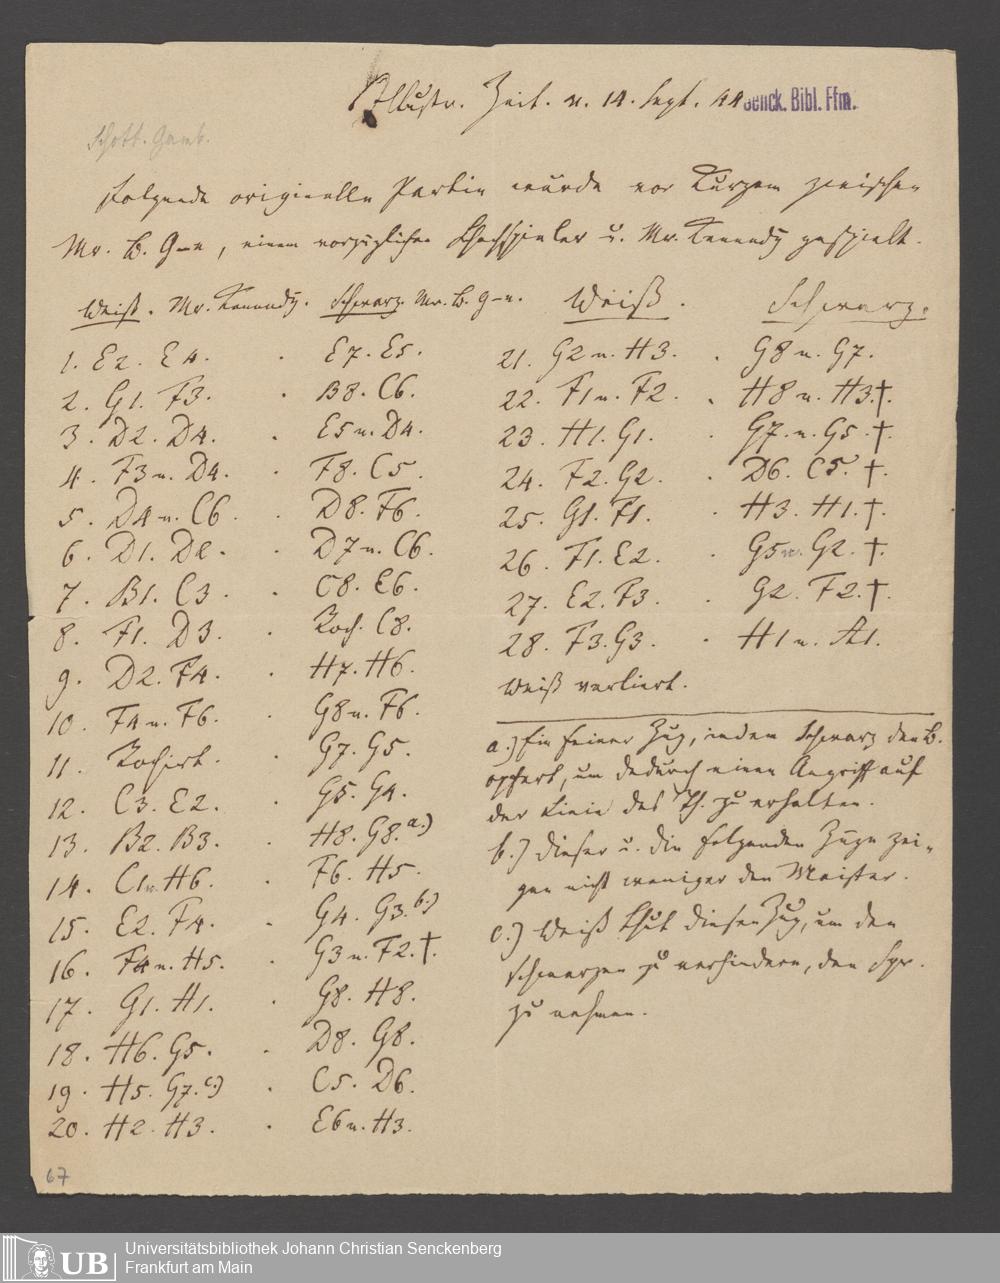 Illustr. Zeit. v. 14. Sept. 44
Senck. Bibl. Ffm.
Schott. Gamb.
Folgende originelle Partie wurde vor Kurzem zwischen
Mr. B. G–n, einem vorzüglichen Schachspieler u. Mr. Kennedy gespielt.
Weiß. Mr. Kennedy. Schwarz Mr. B. G–n.
1. E2. E4. . E7. E5.
2. G1. F3. . B8. C6.
3. D2. D4. . E5 n. D4.
4. F3 n. D4. . F8. C5.
5. D4 n. C6. . D8. F6.
6. D1. D2. . D7 n. C6.
7. B1. C3. . C8. E6.
8. F1. D3. . Roch. C8.
9. D2. F4. . H7. H6.
10. F4 n. F6. . G8 n. F6.
11. Rochirt. . G7. G5.
12. C3. E2. . G5. G4.
13. B2. B3. . H8. G8. a.)
14. C1 n. H6. . F6. H5.
15. E2. F4. . G4. G3. b.)
16. F4 n. H5. . G3 n. F2. †.
17. G1. H1. . G8. H8.
18. H6. G5. . D8. G8.
19. H5. G7. c.) . C5. D6.
20. H2. H3. . E6 n. H3.
Weiß. Schwarz.
21. G2 n. H3. . G8 n. G7.
22. F1 n. F2. . H8 n. H3. †.
23. H1. G1. . G7. n. G5. †.
24. F2. G2. . D6. C5. †.
25. G1. F1. . H3. H1. †.
26. F1. E2. . G5 n. G2. †.
27. E2. F3. . G2. F2. †.
28. F3. G3. . H1 n. A1.
Weiß verliert.
a.) Ein feiner Zug, indem Schwarz den B.
opfert, um dadurch einen Angriff auf
der Linie des Th. zu erhalten.
b.) Dieser u. die folgenden Züge zei-
gen nicht weniger den Meister.
c.) Weiß thut diesen Zug, um den
Schwarzen zu verhindern, den Spr.
zu nehmen.
67
UB
Universitätsbibliothek Johann Christian Senckenberg
Frankfurt am Main